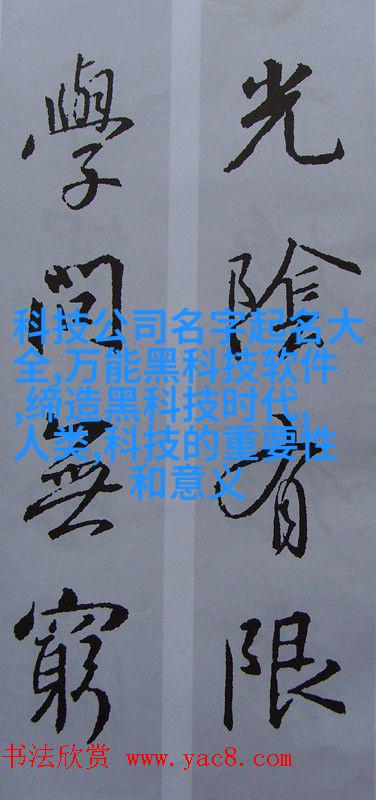 光陰有限
學問無窮
科技公司名字起名大
全,万能黑科技软件
,缔造黑科技时代,
人类,科技的重要性
和意义
书法欣赏 www.yac8.com